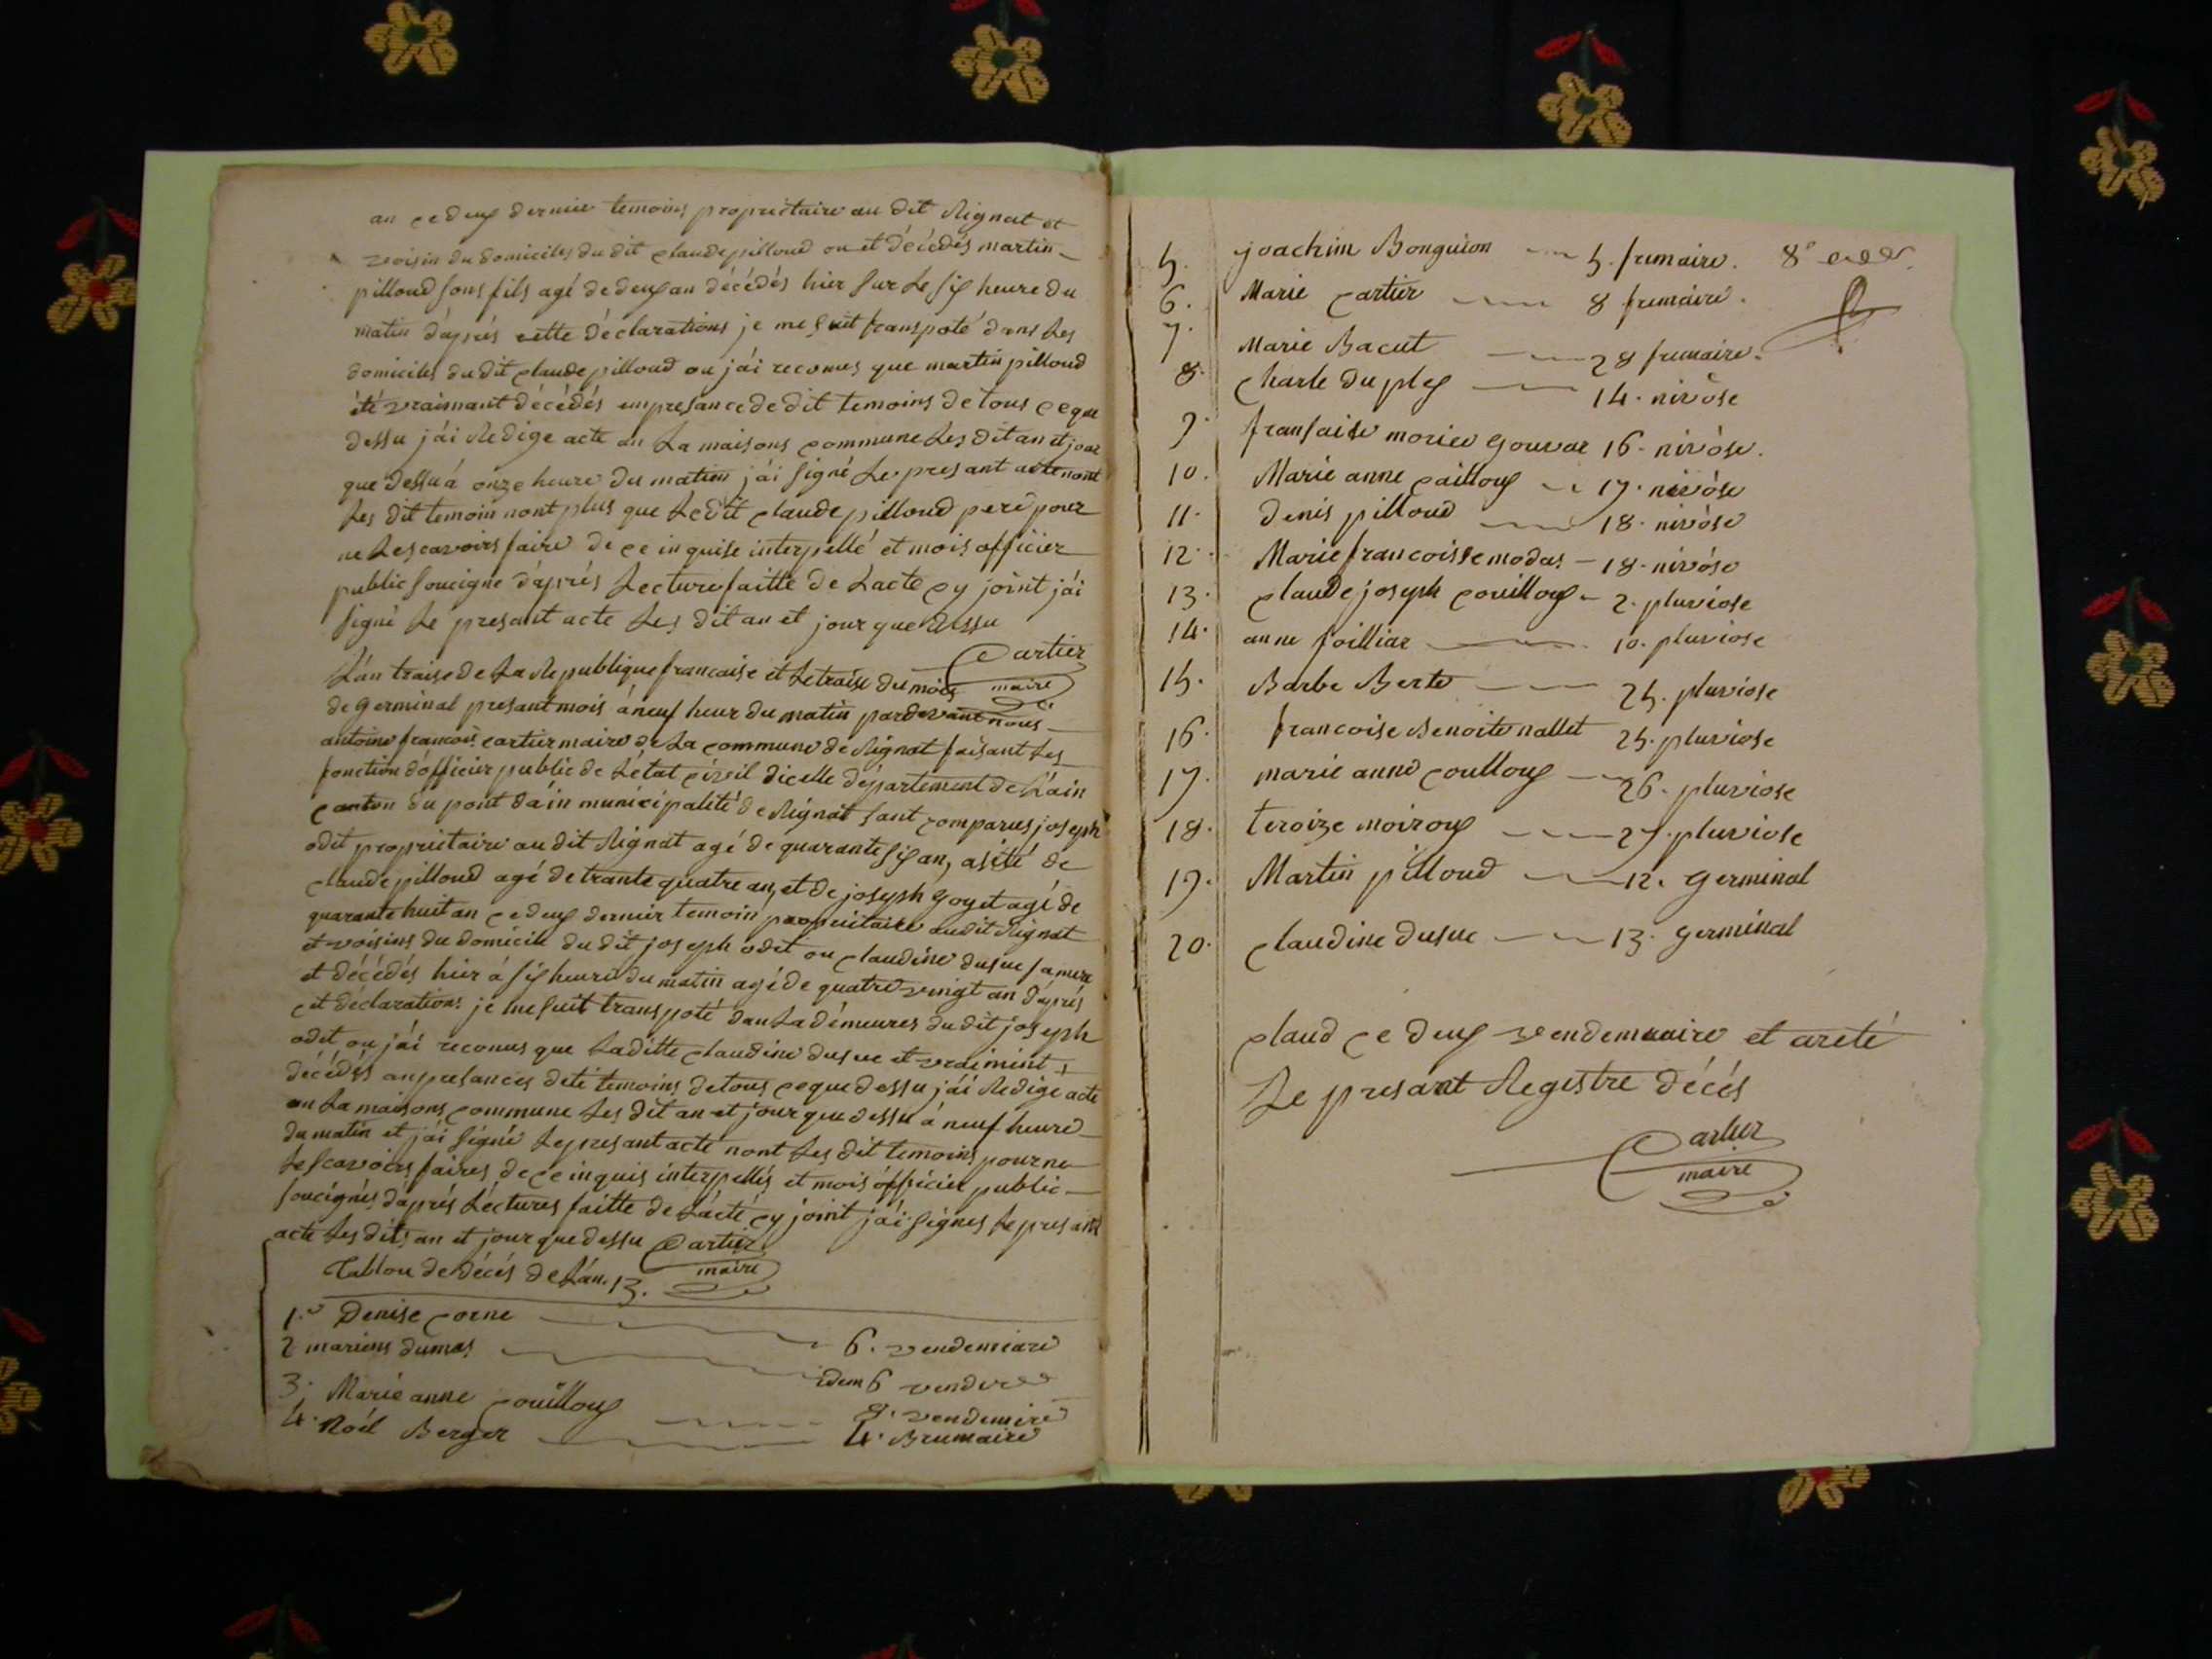 an ce deux dernier temoins propriétaire au dit Rignat et
voisin du domiciles du dit claude pilloud ou et décédés martin
pilloud sons fils agé de deux an décédés hier sur le six heure du
matin d'aprés cette déclarations je me suit transpoté dans les
domiciles du dit claude pilloud ou j'ai reconus que martin pilloud
été vraimant décédés en presance de dit temoins de tous ce que
dessu j'ai Redige acte an la maisons commune les dit an et jour
que dessu á onze heure du matin j'ai signé le presant acte nont
les dit temoin nont plus que le dit claude pilloud pere pour
ne le scavoirs faire de ce inquise interpellé et mois officier
public soucigne d'aprés lecture faitte de lacte cy joint j'ai
signé le presant acte les dit an et jour que dessu
Cartier
maire
L'an traise de la Republique francaise et le traise du mois
de germinal presant mois á neuf heur du matin pardevant nous
antoine francois cartier maire de la commune de Rignat faisant les
fonction d'officier public de l'état civil dicelle département de l'ain
canton du pont d'ain municipalité de Rignat sant comparus joseph
odet propriétaire au dit Rignat agé de quarante six an, asité de
claude pilloud agé de trante quatre an, et de joseph goyet agé de
quarante huit an ce deux dernier temoin propriitaire audit Rignat
et voisins du domicile du dit joseph odet ou claudine dusuc sa mere
et décédés hier á six heure du matin agé de quatre vingt an d'aprés
cet déclarations je me suit transpoté dan la démeures du dit joseph
odet ou j'ai reconus que laditte claudine dusuc et vraimint
décédés an presances deti temoins de tous ce que dessu j'ai Redigé acte
an la maisons commune les dit an et jour que dessu á neuf heure
du matin et j'ai signé le presant acte nont les dit temoins pour ne
le scavoirs faires de ce inquis interpellés et mois officier public
soucignés d'aprés léctures faitte de l'acté cy joint j'ai signes le presant
acte les dits an et jour que dessu Cartier
maire
Tablou de décés de l'an 13.
1.e Denise corne 6. vendemiare
2 mariens dumas idem 6
3. Marie anne couilloux 9. vendemire
4. Noél Berger 4. Brumaire
5. joachim Bonguion 5. frimaire. 8e
6. Marie cartier 8 frimaire.
7. Marie Bacut 28 frimaire.
8. charle duplex 14. nivôse
9. fransaise morier gouvar 16. nivòse.
10. Marie anne cailloux 17. nivòse
11. denis pilloud 18. nivòse
12. Marie francoisse modas 18. nivòse
13. claude joseph couilloux 2. pluviose
14. anne foilliar 10. pluviose
15. Barbe Berte 25. pluviose
16. francoise Benoite nallet 25. pluviose
17. marie anne coulloux 26. pluviose
18. teroize moiroux 27. pluviose
19. Martin pilloud 12. germinal
20. claudine dusuc 13. germinal
claud ce deux vendemuaire et areté
Le presant Registre décés
Cartier
maire